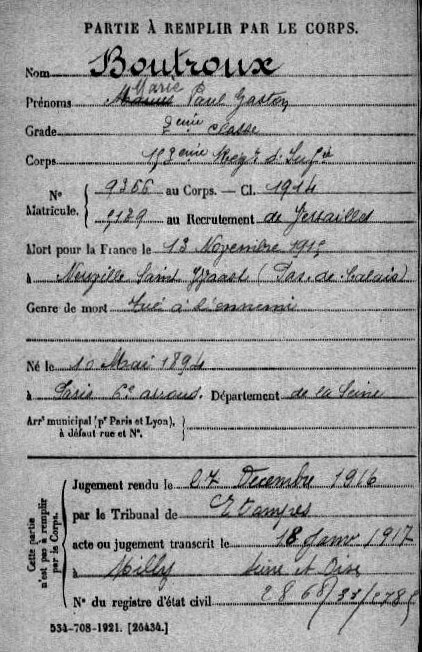 PARTIE À REMPLIR PAR LE CORPS.
Nom Boutroux
Marie
Prénoms Paul Gaston
Grade 2eme classe
Corps 153eme Regt d'Infie
Nº Matricule. 9366 au Corps. — Cl. 1914
au Recrutement de Versailles
Mort pour la France le 13 Novembre 1915
à Neuville Saint Vaast (Pas-de-Calais)
Genre de mort Tué à l'ennemi
Né le 10 Mai 1894
à Paris 6e arrond. Département de la Seine
Arrt municipal (pr Paris et Lyon),
à défaut rue et Nº.
Cette partie
n'est pas à remplir
par le Corps.
Jugement rendu le 07 Decembre 1916
par le Tribunal de Etampes
acte ou jugement transcrit le 18 Janv 1917
à Milly Seine et Oise
Nº du registre d'état civil
534-708-1921. [26434.]